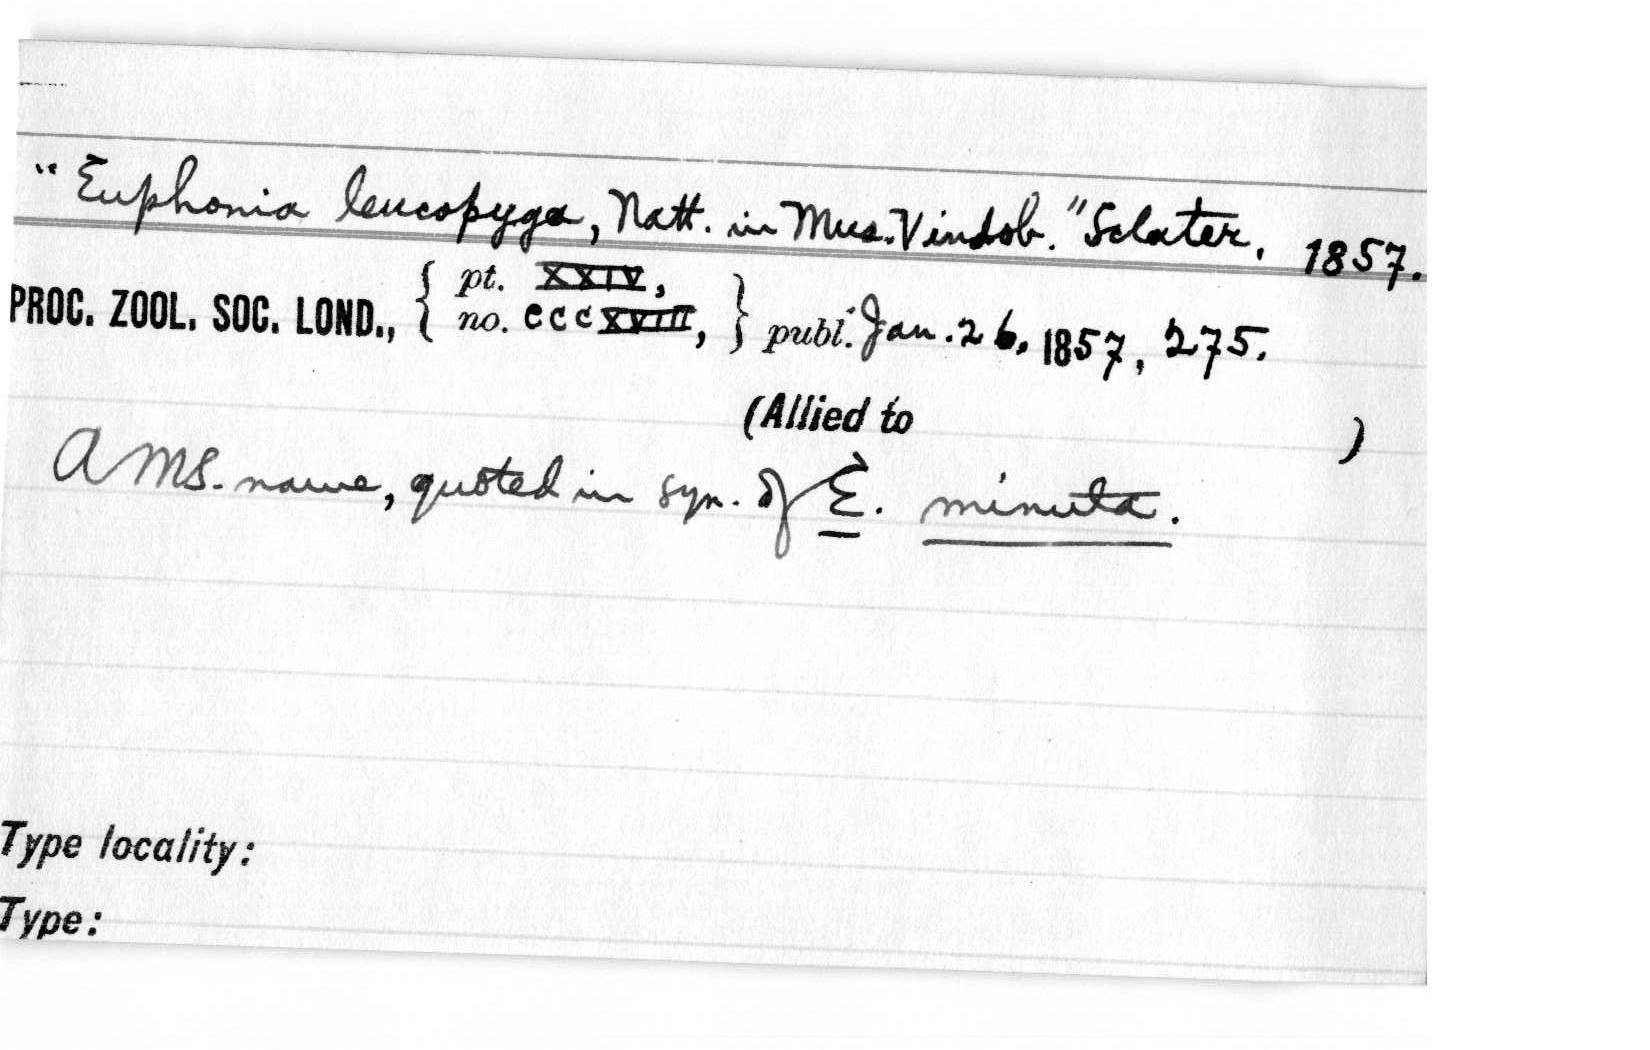 "Euphonia leucopyga, Natt. in Mus. Vindob." Sclater, 1857.
PROC. ZOOL. SOC. LOND., { pt. XXIV, no. CCCXVIII, } publ. Jan. 26, 1857, 275.
(Allied to )
A MS. name, quoted in syn. of E. minuta.
Type locality:
Type: